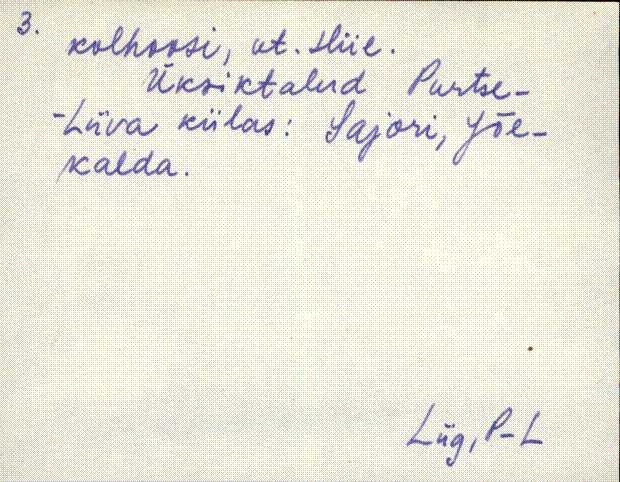 3.
kolhoosi, vt. Hiie.
Üksiktalud Purtse-
-Liiva külas: Sajori, Jõe-
kalda.
Lüg, P-L